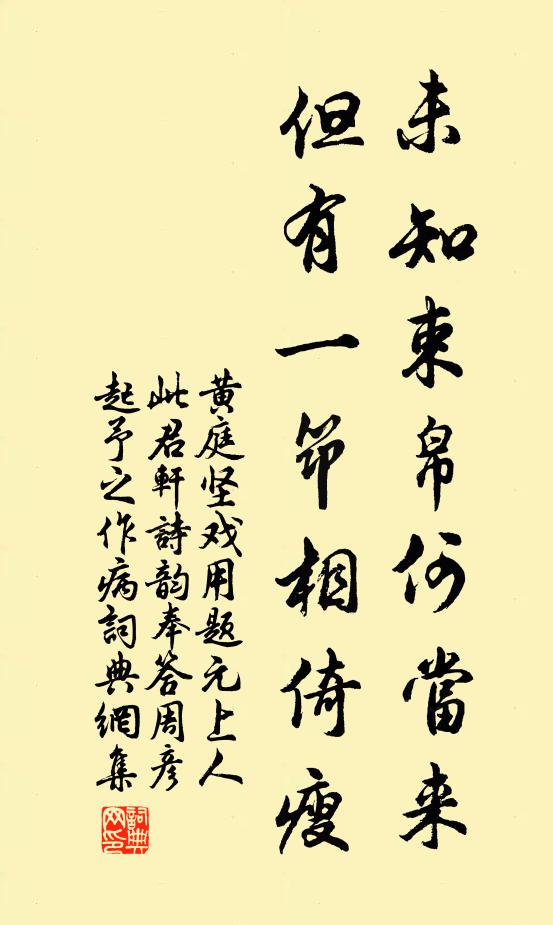 未知束帛何當来
但有一笻相倚瘦
黄庭坚戏用题元上人
此君軒詩韵奉答周彦
起予之作病詞典網集
詞典网印